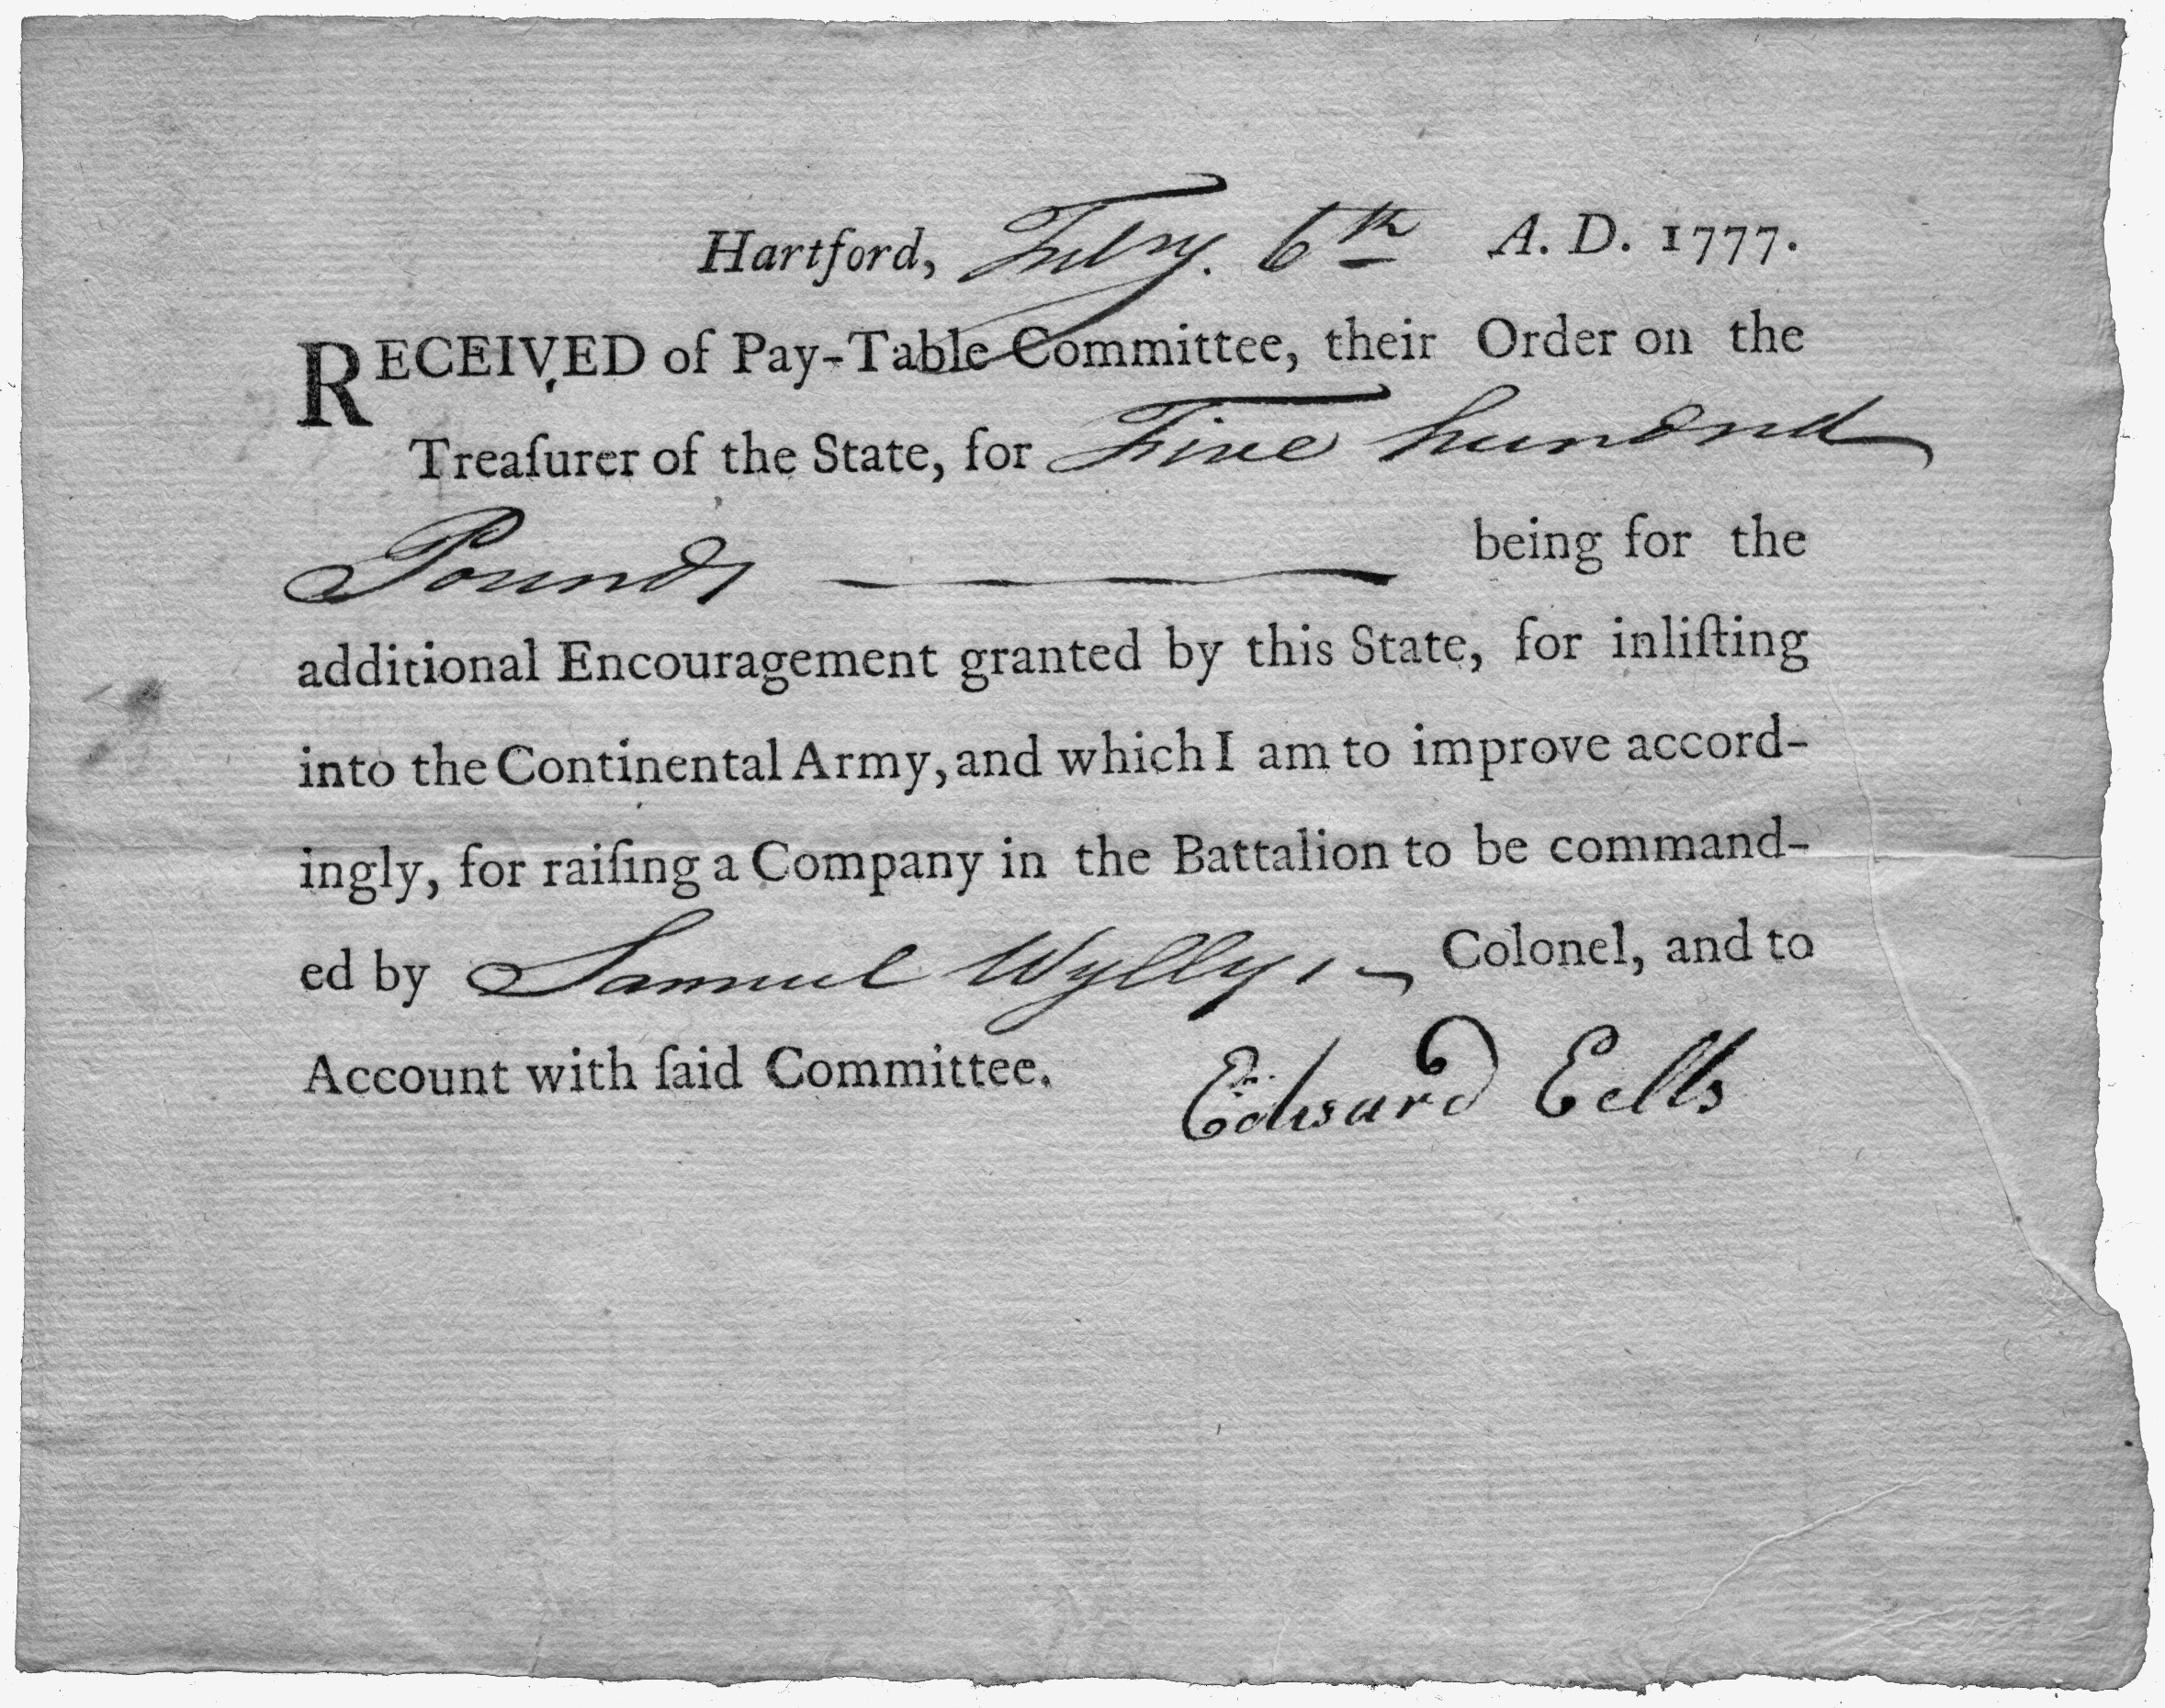 Hartford, Febry. 6th A. D. 1777.
RECEIVED of Pay-Table Committee, their Order on the
Treaſurer of the State, for Five hundred
Pounds ——— being for the
additional Encouragement granted by this State, for inliſting
into the Continental Army, and which I am to improve accord-
ingly, for raiſing a Company in the Battalion to be command-
ed by Samuel Wyllys Colonel, and to
Account with ſaid Committee.
Edward Eells